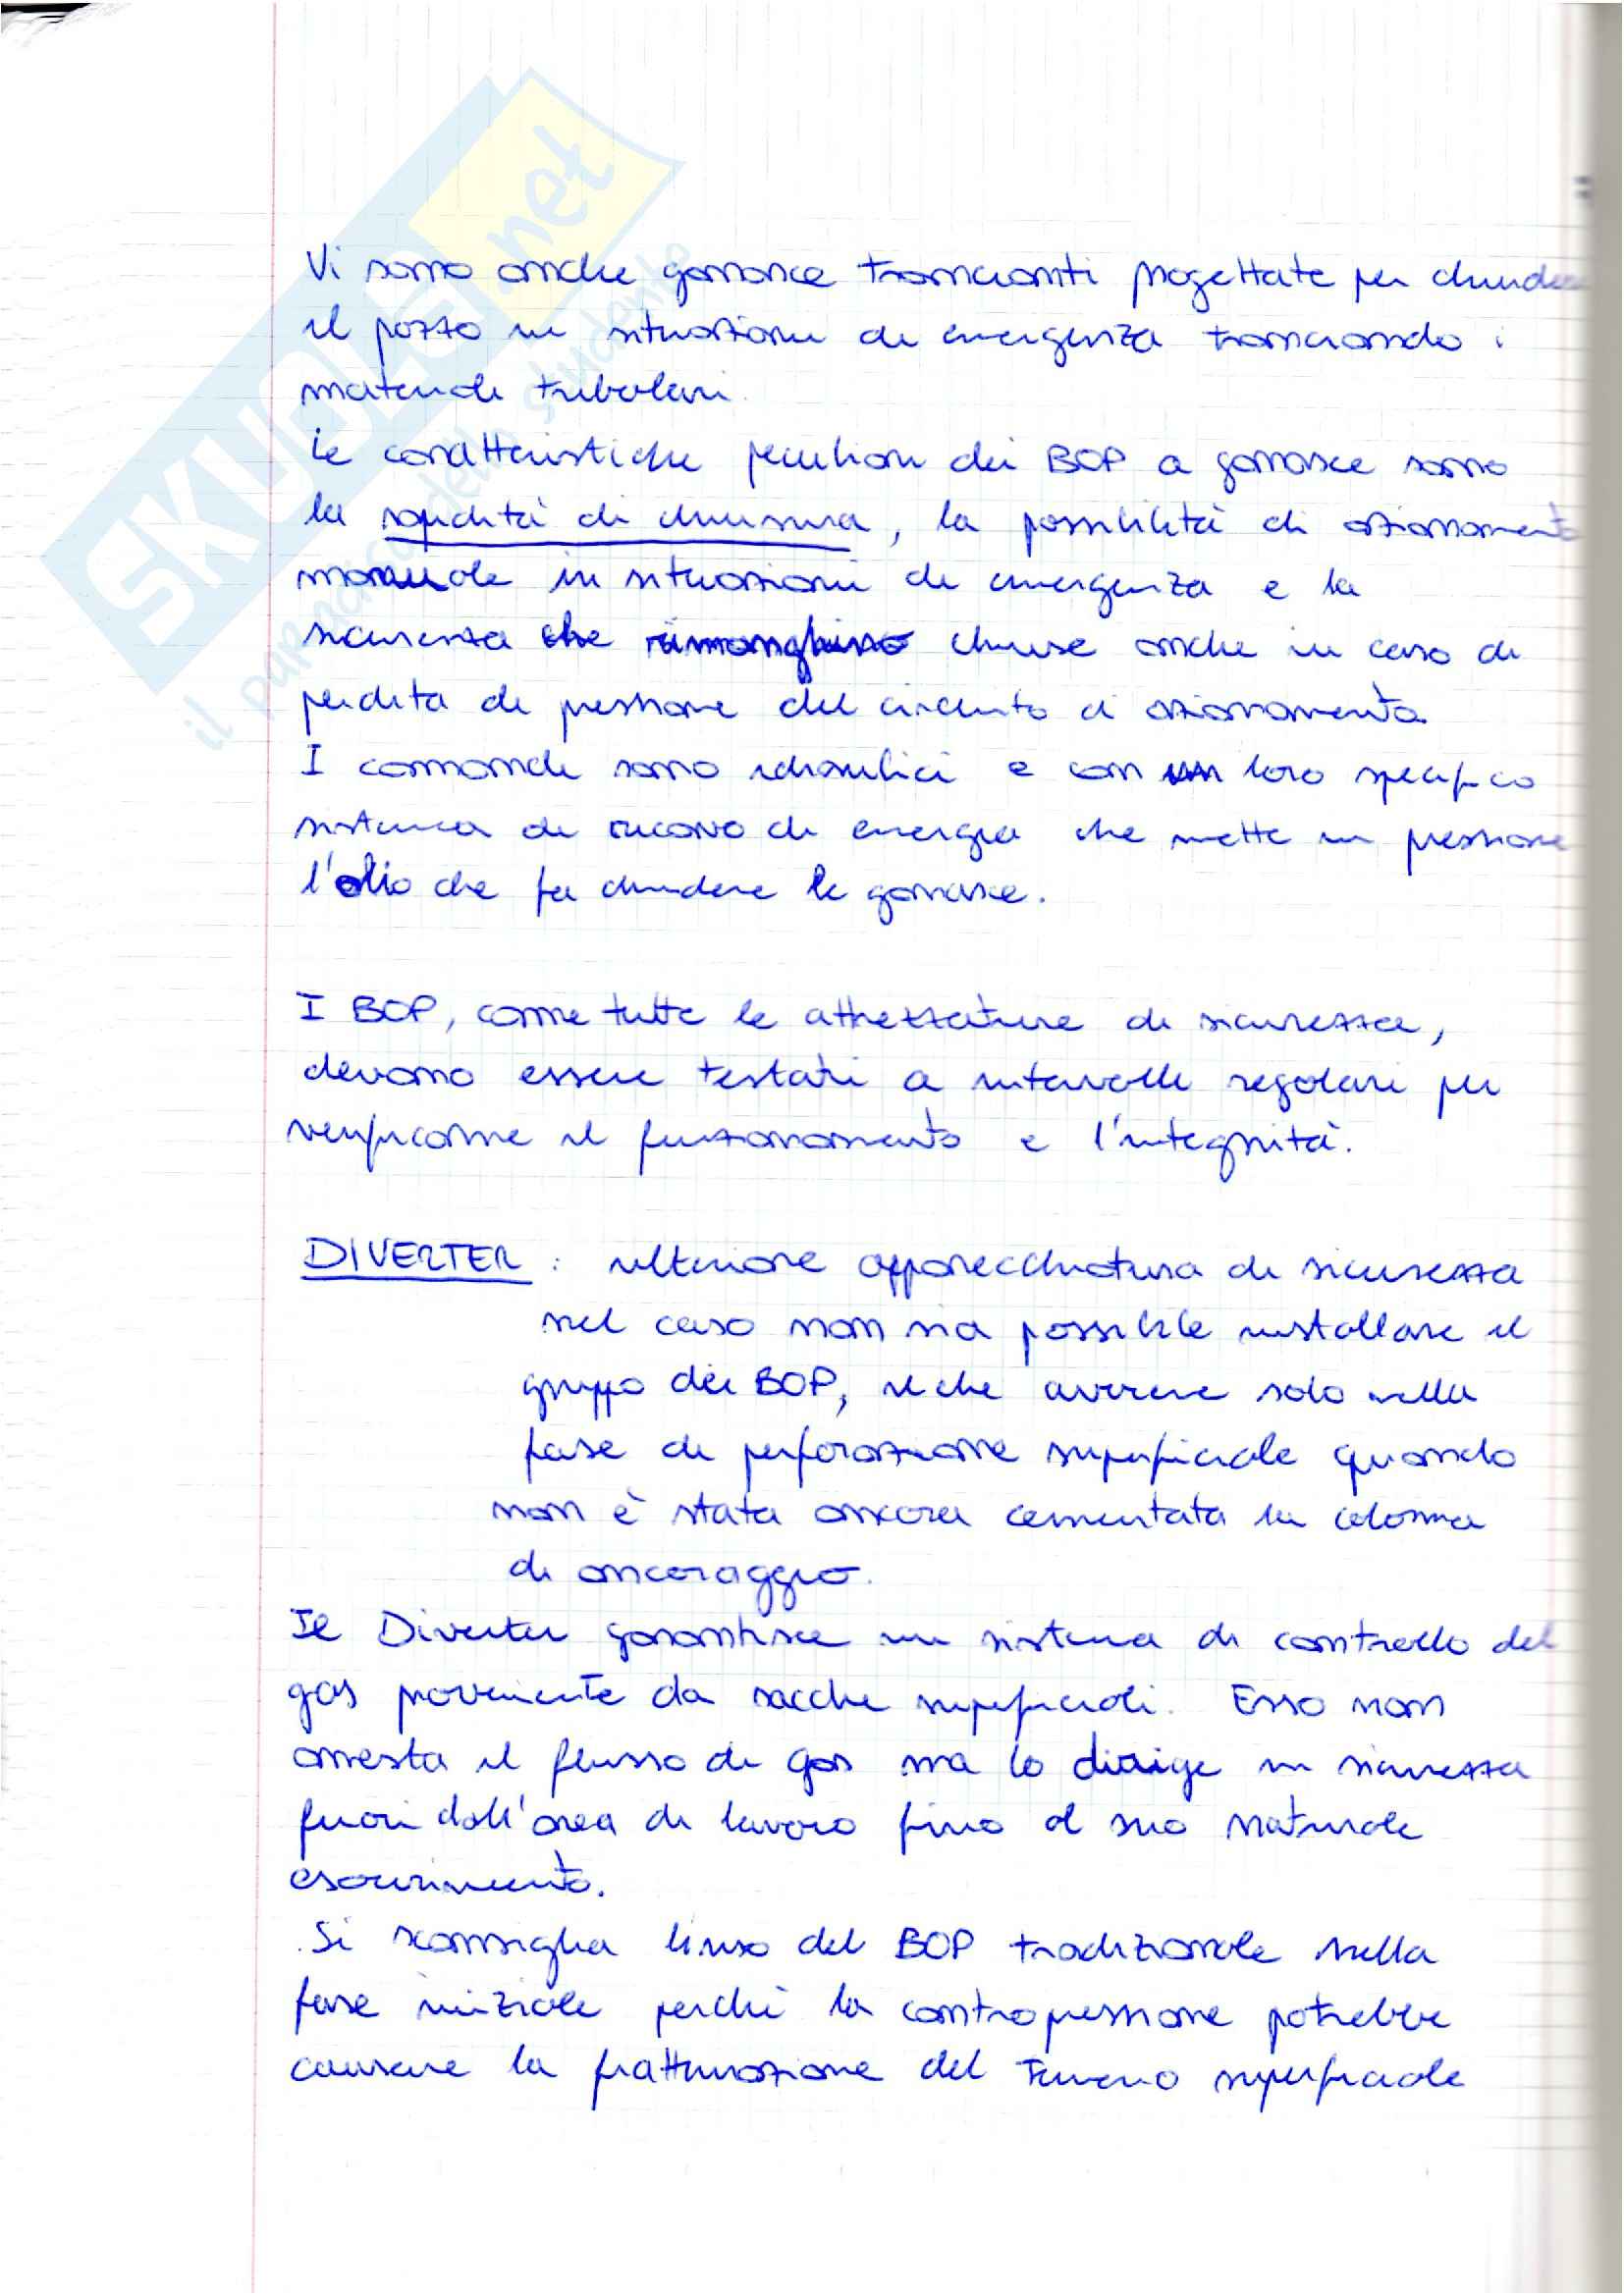 SKUOLA.net
il paradiso dello studente
Vi sono anche ganasce trancianti progettate per chiudere
il pozzo in situazioni di emergenza tranciando i
materiali tubolari.
Le caratteristiche peculiari dei BOP a ganasce sono
la rapidità di chiusura, la possibilità di azionamento
manuale in situazioni di emergenza e la
sicurezza che rimanghino chiuse anche in caso di
perdita di pressione del circuito di azionamento.
I comandi sono idraulici e con loro specifico
sistema di ricarica di energia che mette in pressione
l'olio che fa chiudere le ganasce.
I BOP, come tutte le attrezzature di sicurezza,
devono essere testati a intervalli regolari per
verificarne il funzionamento e l'integrità.
DIVERTER : ulteriore apparecchiatura di sicurezza
nel caso non sia possibile installare il
gruppo dei BOP, il che avviene solo nella
fase di perforazione superficiale quando
non è stata ancora cementata la colonna
di ancoraggio.
Il Diverter garantisce un sistema di controllo del
gas proveniente da sacche superficiali. Esso non
arresta il flusso di gas ma lo dirige in sicurezza
fuori dall'area di lavoro fino al suo naturale
esaurimento.
Si sconsiglia l'uso del BOP tradizionale nella
fase iniziale perchè la contropressione potrebbe
causare la fratturazione del terreno superficiale